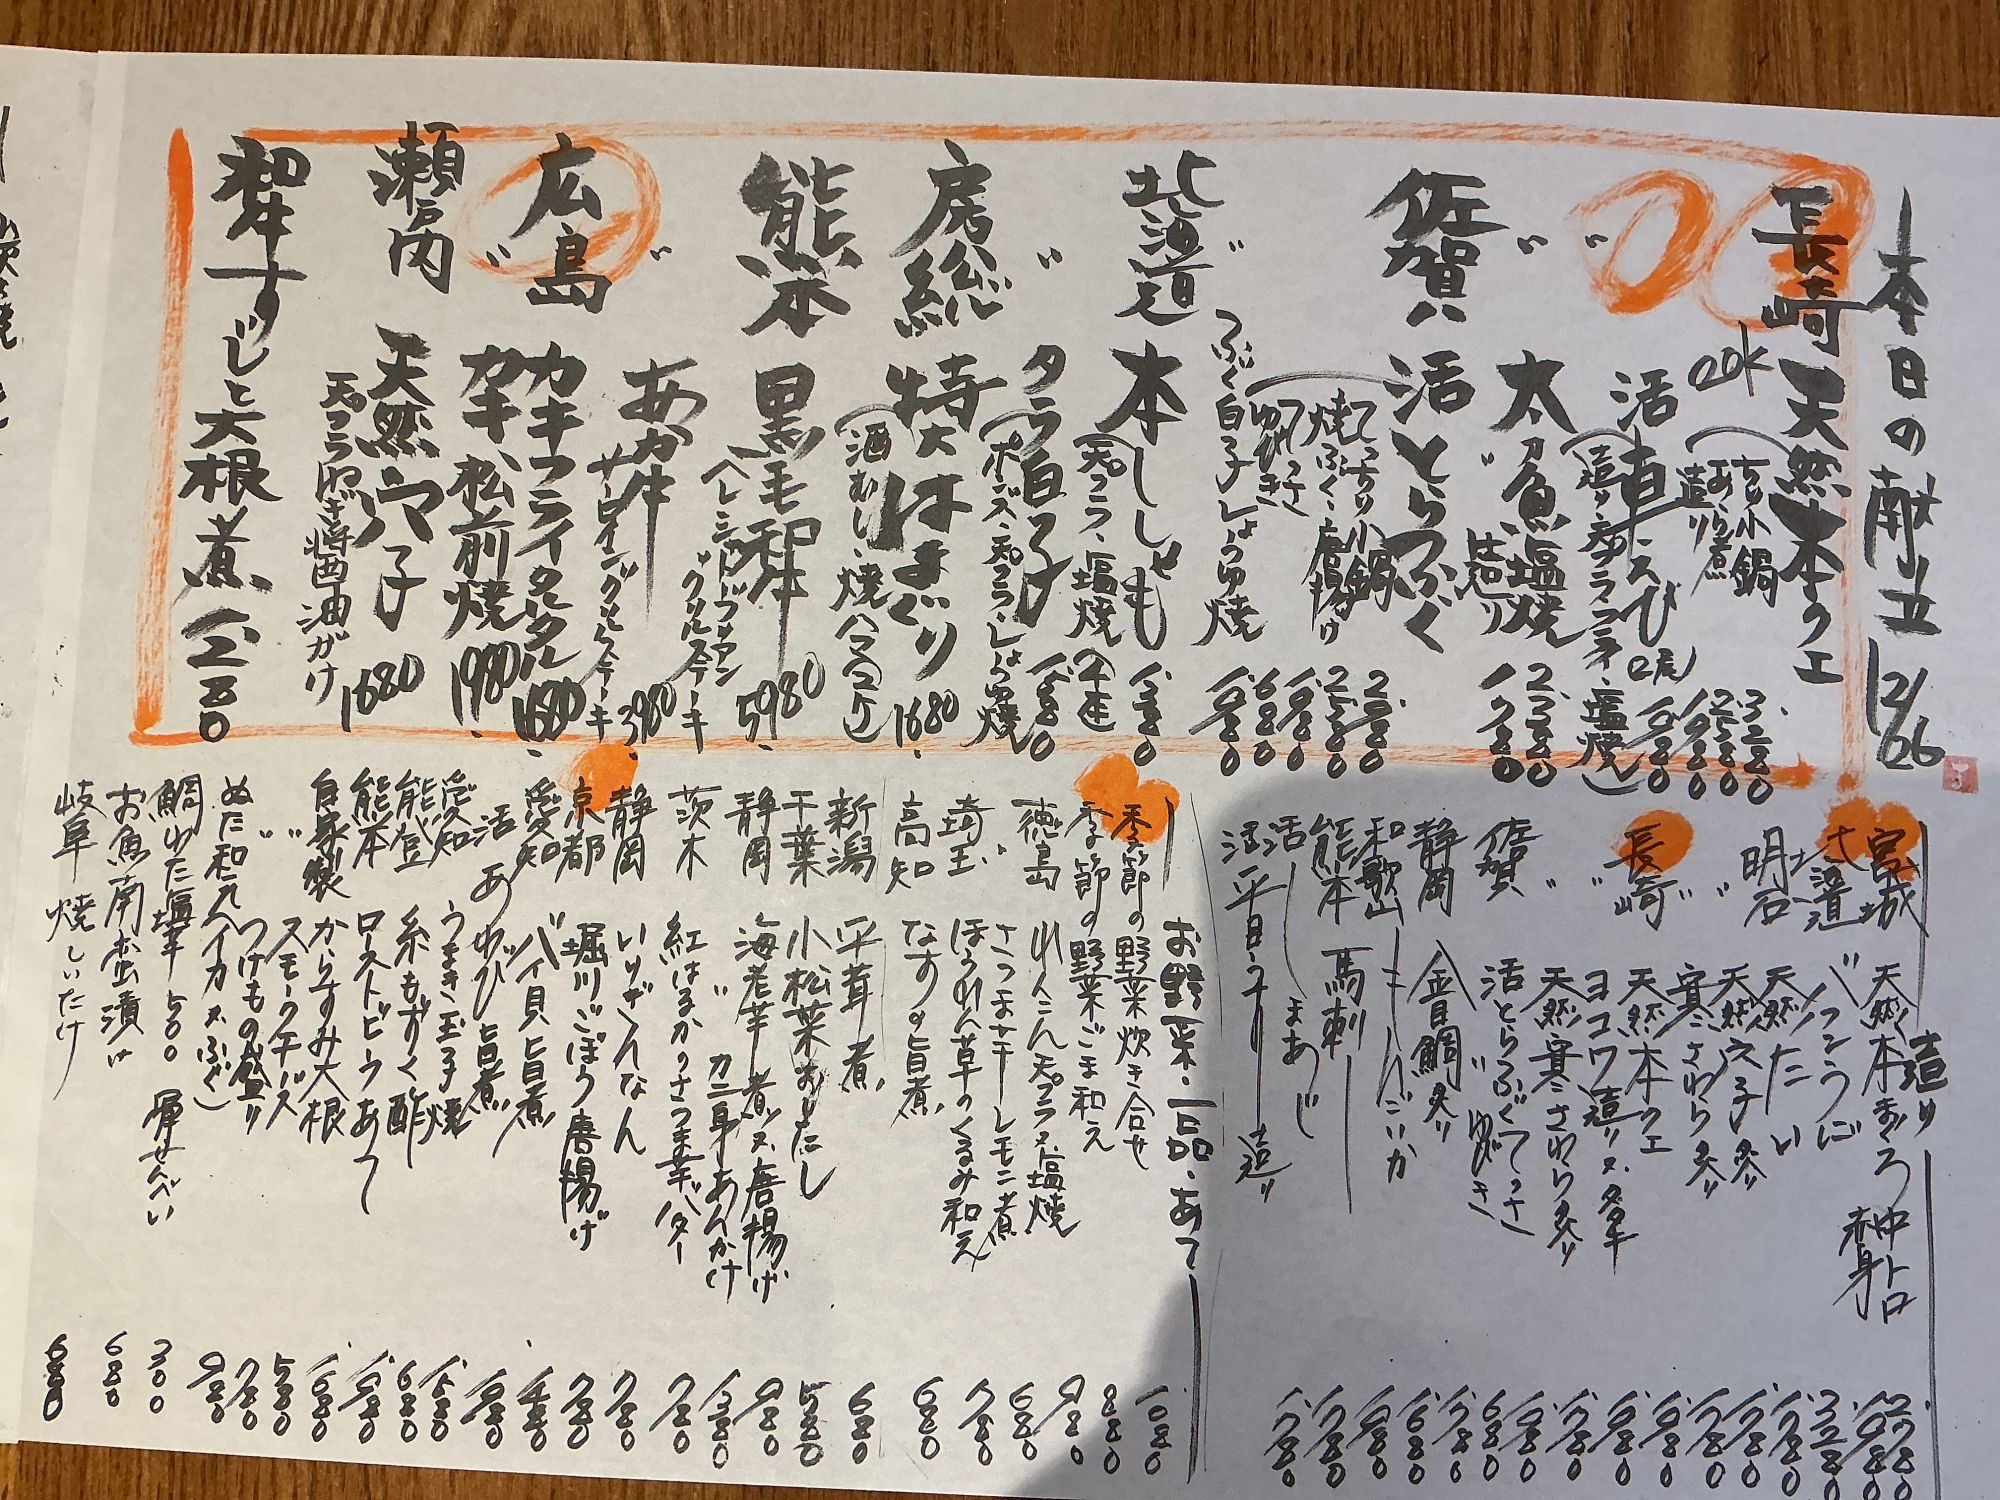 本日の献立 12/06
長崎 天然本クエ
20k
ちり小鍋 3280
あら煮 2580
造り 1980
〃 活車えび 2尾 1980
(造り・天プラ・塩焼)
〃 太刀魚塩焼 2380
〃 造り 1780
佐賀 活とらふぐ
てっちり小鍋 2980
焼ふぐ・唐揚げ 2580
てっさ 1980
ゆびき 680
〃 ふぐ白子しょうゆ焼 1980
北海道 本ししゃも 1380
(天プラ・塩焼)
〃 タラ白子 1880
(ポンズ・天プラ・しょうゆ焼
房総 特大はまぐり 1680
(酒むし・焼ハマ)
熊本 黒毛和牛 5980
ヘレシャトーブリアン
グリルステーキ
〃 あか牛 3980
サーロイングリルステーキ
広島 カキフライタルタル 1680
〃 カキ松前焼 1980
瀬戸内 天然穴子 1680
天プラねぎ醤油がけ
和牛すじと大根煮 1280
造り
宮城 天然本まぐろ 中トロ 2780
赤身 1980
北海道 バフンうに 3280
明石 天然たい 1780
〃 天然穴子炙り 1780
〃 寒さわら炙り 1780
長崎 天然本クエ 1980
〃 ヨコワ造り又タタキ 1980
〃 天然寒さわら炙り 1780
佐賀 活とらふぐてっさ 1980
〃 ゆびき 680
静岡 金目鯛炙り 1780
和歌山 しんこいか 1680
熊本 馬刺 1980
活 しまあじ 1780
活 平目うす造り 1780
お野菜・一品・あて
季節の野菜炊き合せ 1080
季節の野菜ごま和え 880
徳島 れんこん天プラ又塩焼 980
〃 さつま芋レモン煮 680
埼玉 ほうれん草のくるみ和え 780
高知 なすの旨煮 680
新潟 平茸煮 680
千葉 小松菜おひたし 580
静岡 海老芋煮又唐揚げ 980
〃 カニ身あんかけ 1380
茨木 紅はるかのさつま芋バター 780
静岡 いりぎんなん 780
京都 堀川ごぼう唐揚げ 780
愛知 バイ貝旨煮 1480
活あわび旨煮 1980
愛知 うまき玉子焼 1580
能登 糸もずく酢 680
熊本 ローストビーフあて 1980
自家製 からすみ大根 1680
〃 スモークチーズ 580
〃 つけもの盛り 780
ぬた和え(イカ又ふぐ) 980
鯛わた塩辛 500 揮せんべい 300
お魚南蛮漬け 680
岐阜 焼しいたけ 680